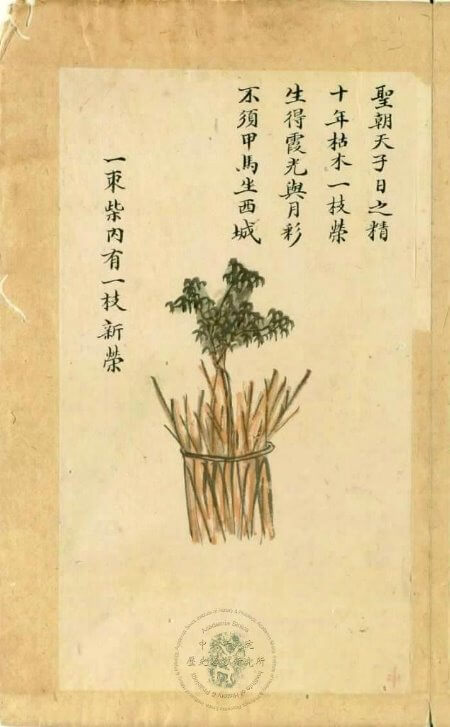 聖朝天子日之精
十年枯木一枝榮
生得霞光與月彩
不須甲馬坐西城
一束柴內有一枝新榮
Academia Sinica
中央研究院
歷史語言研究所
Institute of History & Philology